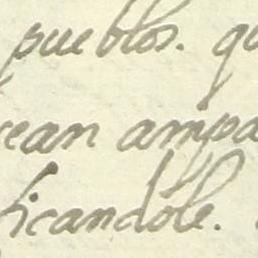 pueblos. qu
rean ampa
ficandole.